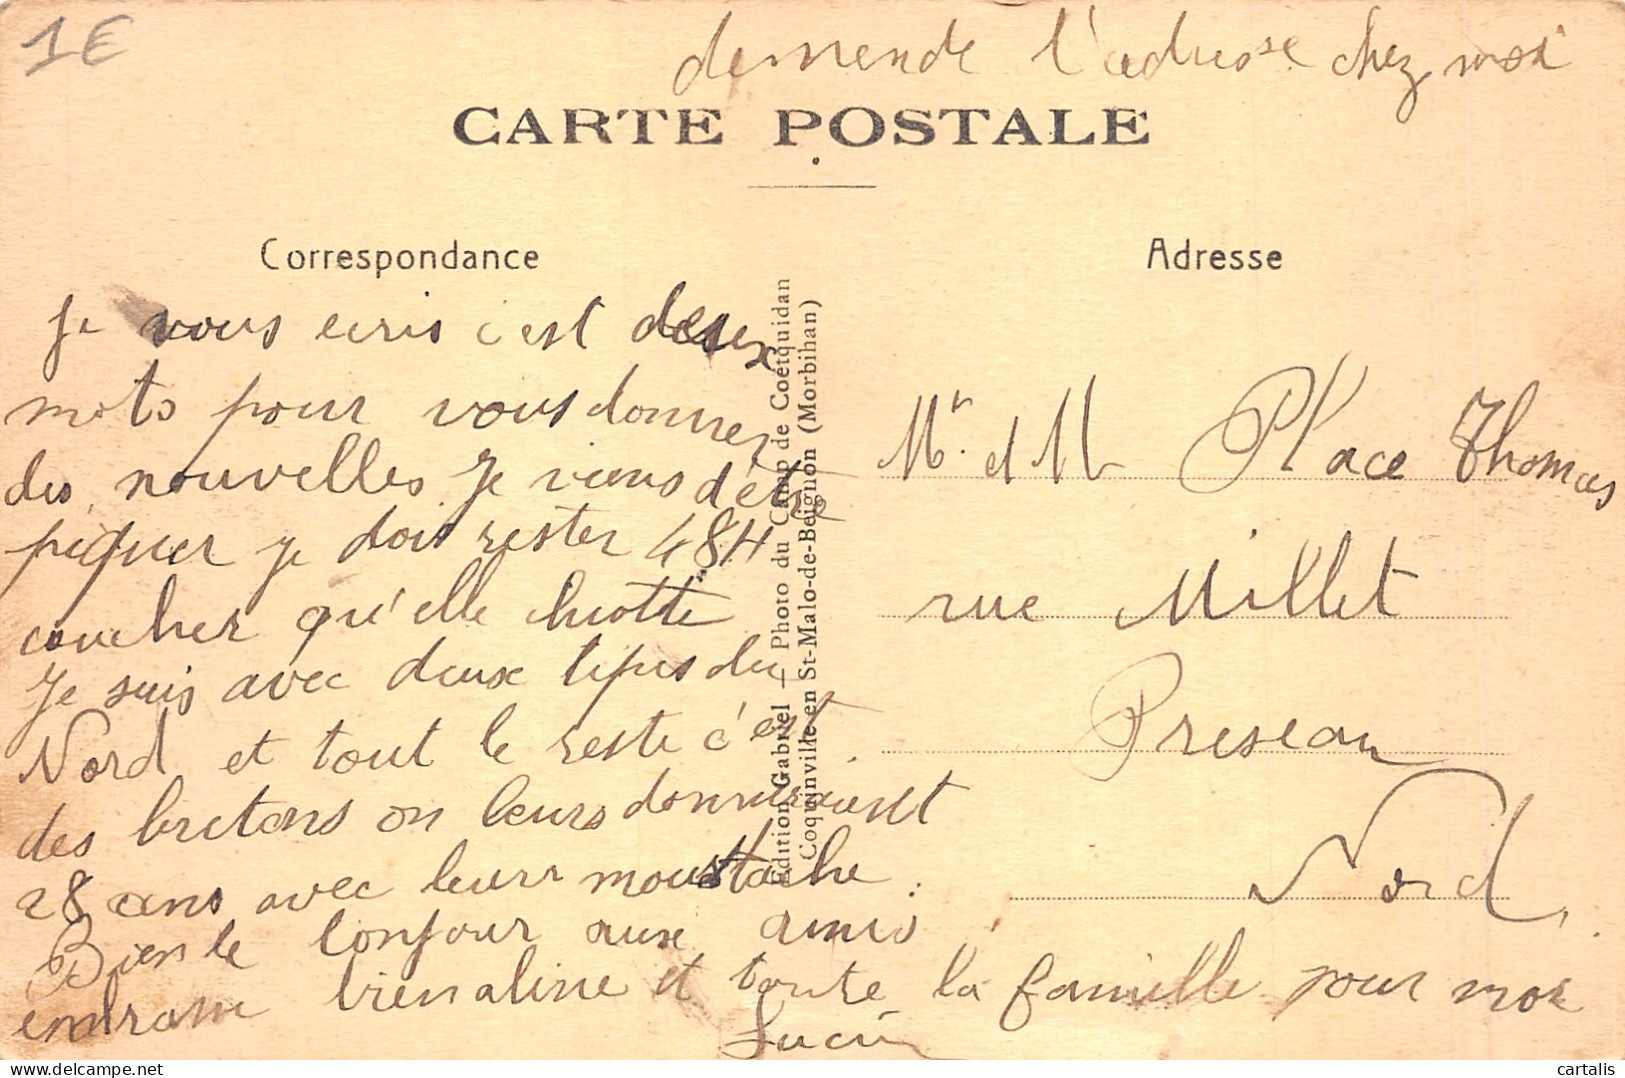 1€
demende l'adresse chez moi
CARTE POSTALE
Correspondance
Je vous ecris c'est deux
mots pour vous donner
des nouvelles Je viens d'être
piquer je dois rester 48H
coucher qu'elle chiotte
Je suis avec deux tipes du
Nord et tout le reste c'est
des bretons on leurs donneraient
28 ans avec leurs moustache.
Bien le bonjour aux amis
embrasse bien aline et toute la famille pour moi
Lucien
Edition Gabriel — Photo du Camp de Coëtquidan
Coquinville en St-Malo-de-Beignon (Morbihan)
Adresse
Mr. et M Place Thomas
rue Millet
Preseau
Nord.
cartalis